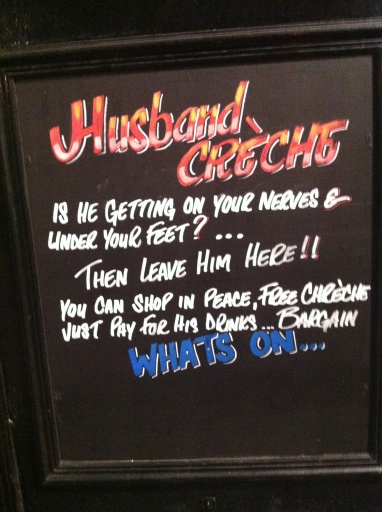 Husband
CRÈCHE
IS HE GETTING ON YOUR NERVES &
UNDER YOUR FEET? ...
THEN LEAVE HIM HERE!!
YOU CAN SHOP IN PEACE, FREE CHRÈCHE
JUST PAY FOR HIS DRINKS... BARGAIN
WHATS ON...